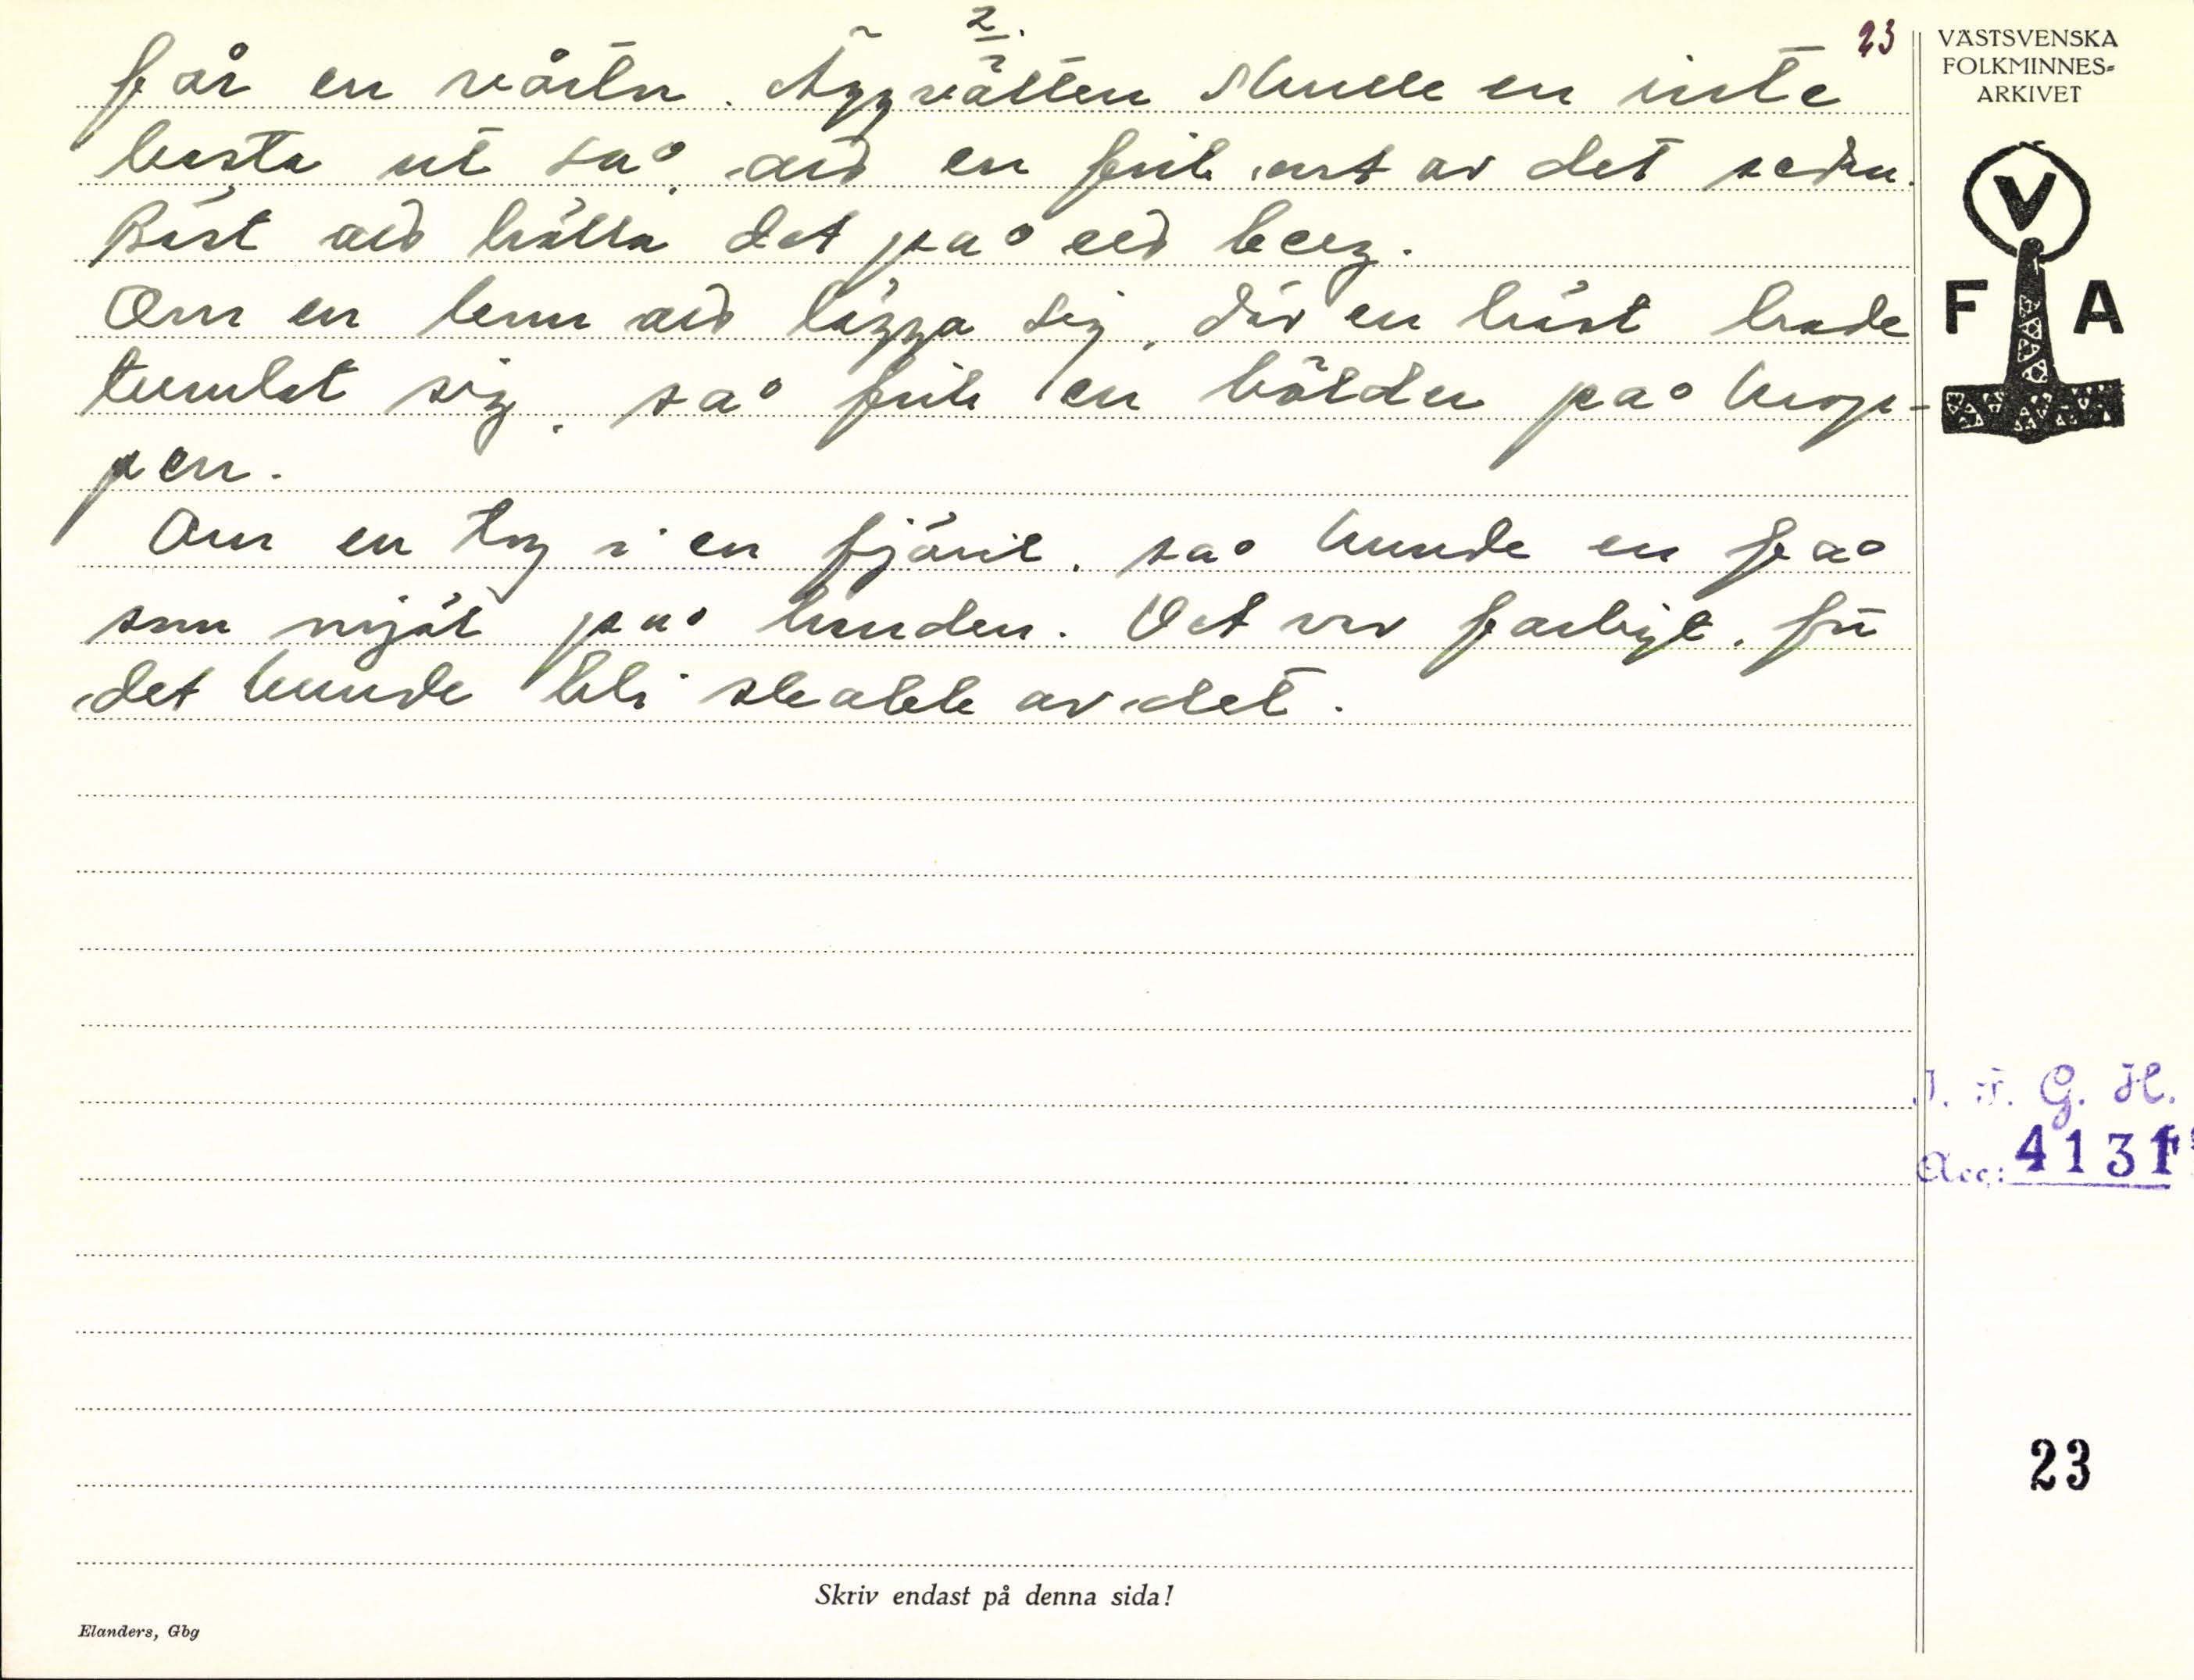 2.
23
får en vårta. Äggvatten skulle en inte
kasta ut så, att en fick ont av det sedan.
Bäst att hälla det på ett berg.
Om en kom att lägga sig, där en häst hade
tumlat sig, så fick en bölder på krop-
pen.
Om en tog i en fjäril, så kunde en få
som mjöl på handen. Det var farligt, för
det kunde bli skabb av det.
VÄSTSVENSKA
FOLKMINNES-
ARKIVET
V
F A
I. F. G. H.
Acc: 4131
23
Skriv endast på denna sida!
Elanders, Gbg